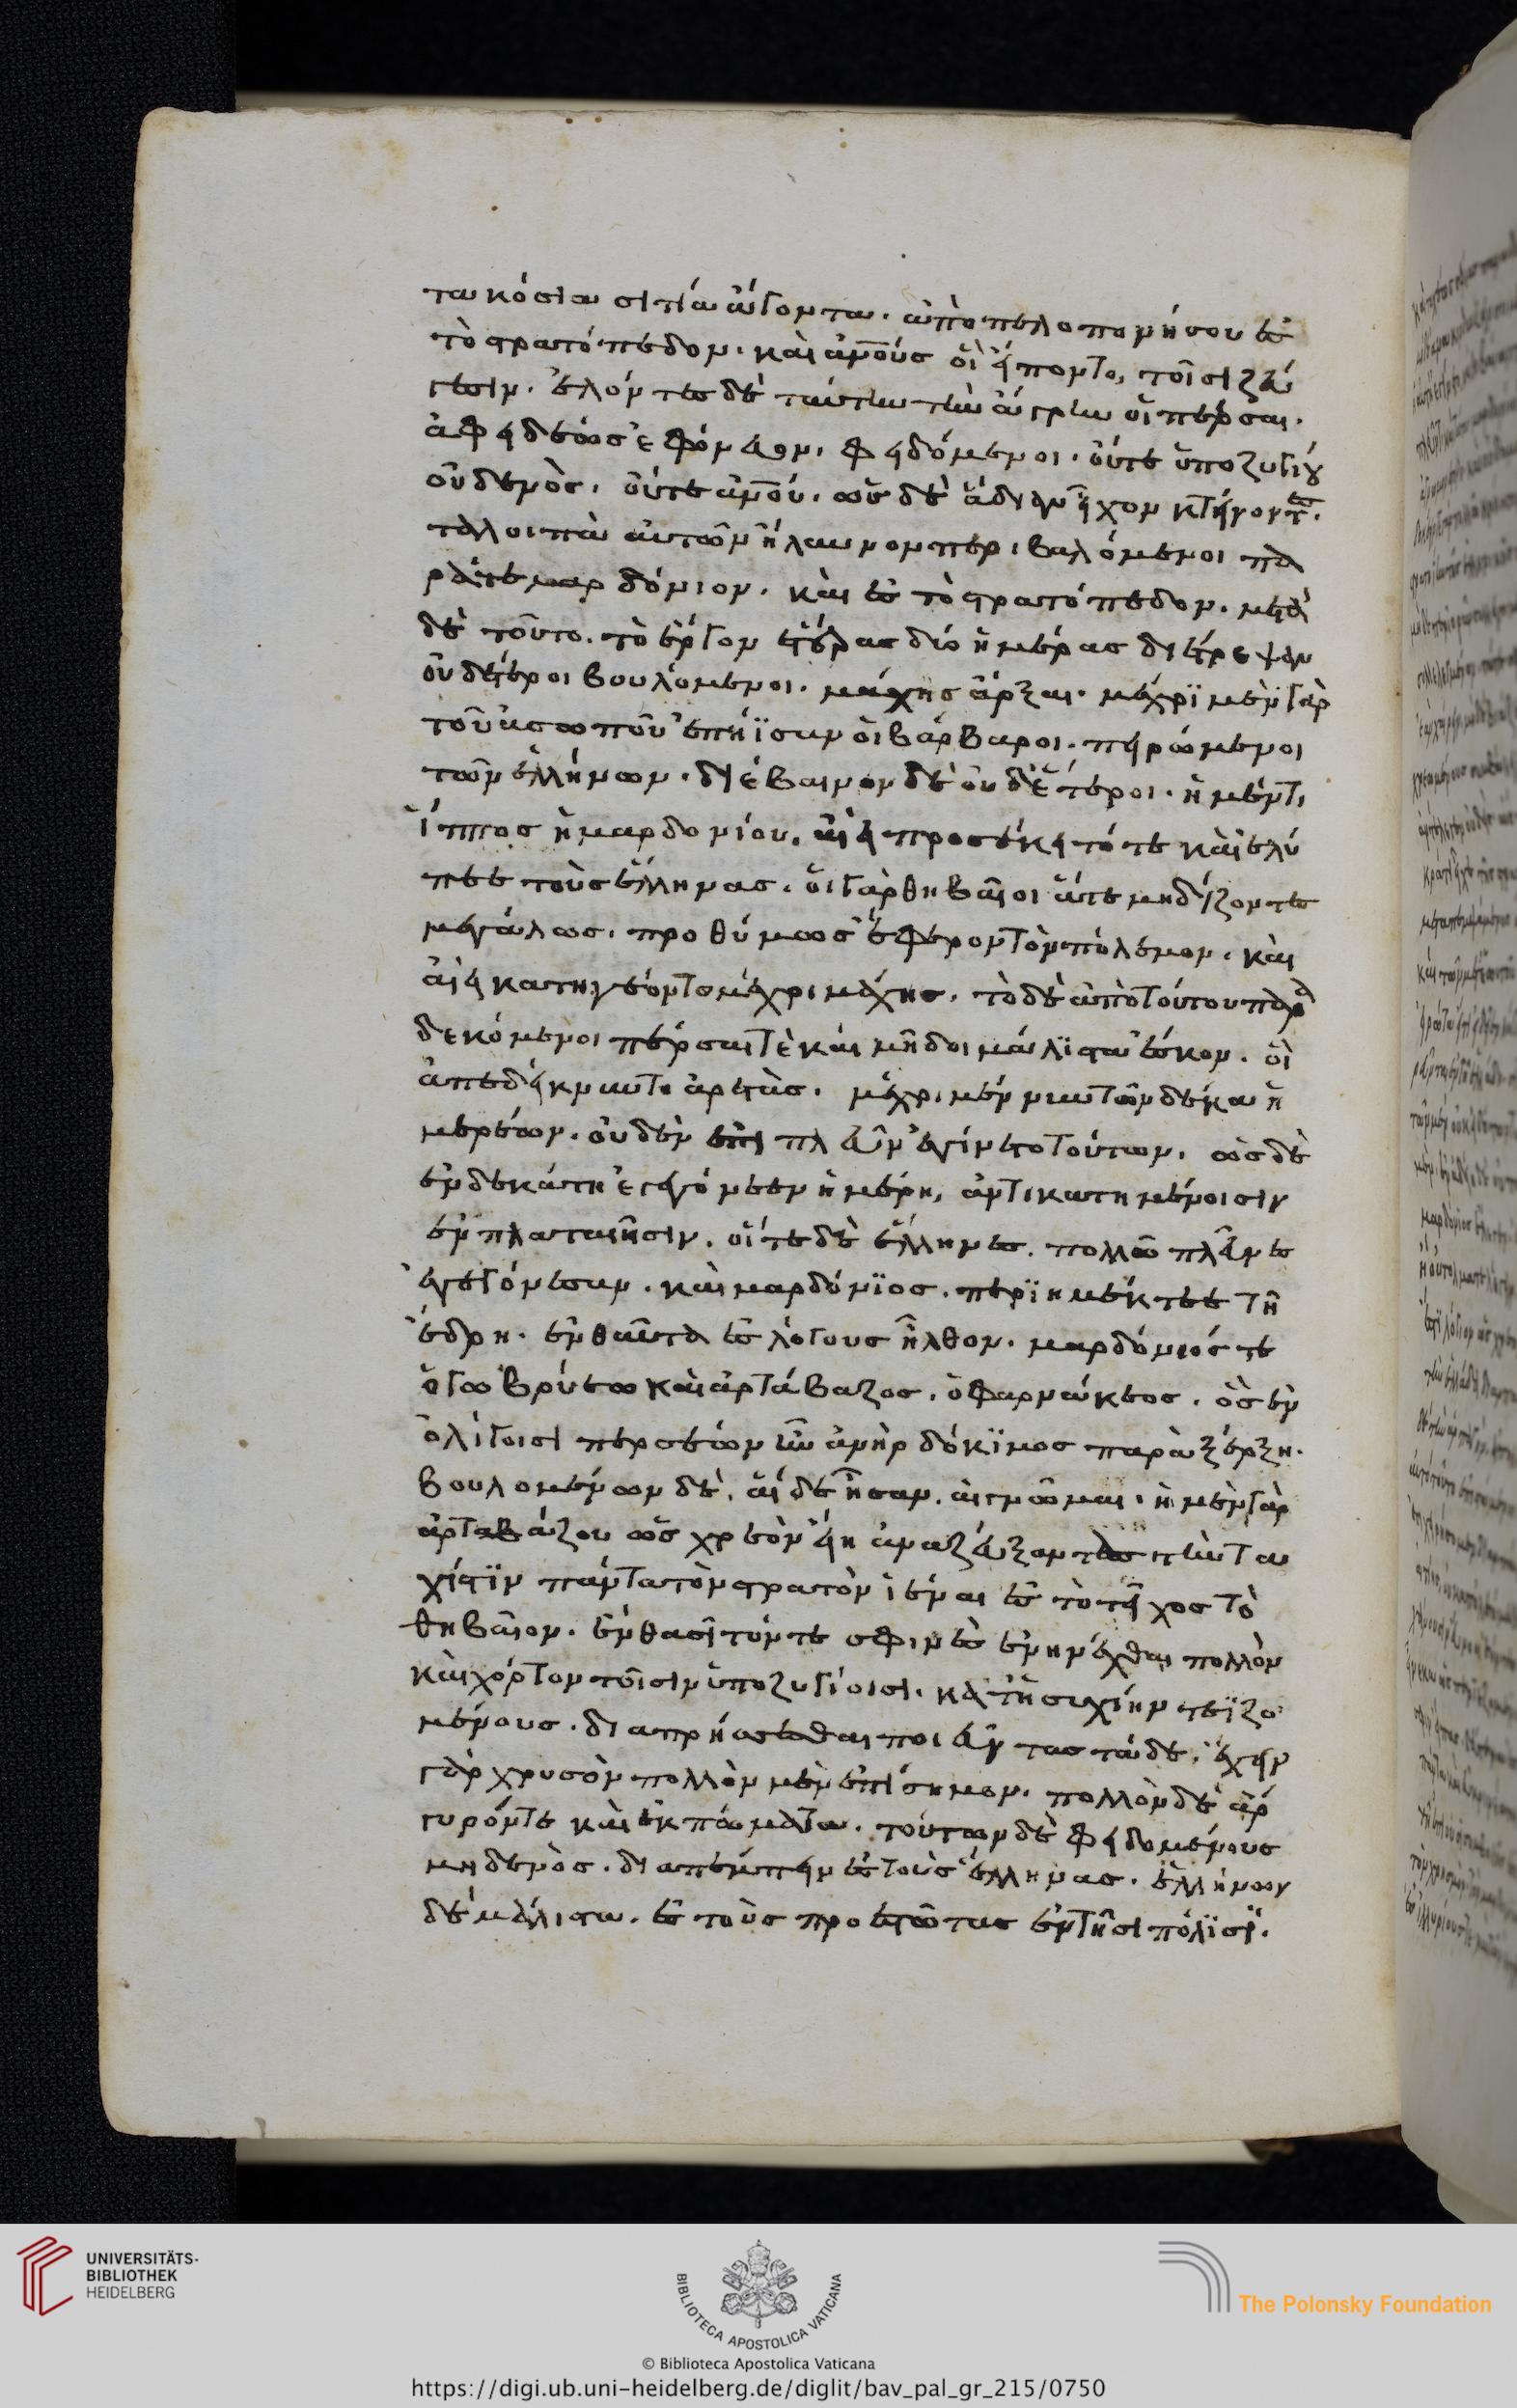 τακόσια σιτία ἄγοντα. ἀπὸ πελοποννήσου ἐς
τὸ στρατόπεδον. καὶ ἀνθρώπους οἳ εἵποντο, τοῖσι ζεύ
γεσιν. ἑλόντες δὲ ταύτην τὴν ἄγρην οἱ πέρσαι.
ἀφειδέως ἐφόνευον. φειδόμενοι. οὔτε ὑποζυγίου
οὐδενὸς. οὔτε ἀνθρώπου. ὡς δὲ ἄδην εἶχον κτείνοντες.
τὰ λοιπὰ αὐτῶν ἤλαυνον περιβαλόμενοι πα
ρά τε μαρδόνιον. καὶ ἐς τὸ στρατόπεδον. μετὰ
δὲ τοῦτο. τὸ ἔργον ἑτέρας δύο ἡμέρας διέτρεψαν
οὐδέτεροι βουλόμενοι. μάχης ἄρξαι. μέχρϊ μὲν γὰρ
τοῦ ἀσωποῦ ἐπήϊσαν οἱ βάρβαροι. πειρώμενοι
τῶν ἑλλήνων. διέβαινον δὲ οὐδέτεροι. ἡ μέντοι
ἵππος ἡ μαρδονίου. αἰεὶ προσέκειτό τε καὶ ἐλύ
πεε τοὺς ἕλληνας. οἱ γὰρ θηβαῖοι ἅτε μηδίζοντες
μεγάλως. προθύμως ἔφερον τὸν πόλεμον. καὶ
αἰεὶ κατηγέοντο μέχρι μάχης. τὸ δὲ ἀπὸ τούτου παρα
δεκόμενοι πέρσαι τὲ καὶ μῆδοι μάλϊστα ἔσκον. οἳ
ἀπεδείκνυντο ἀρετάς. μέχρι μέν νυν τῶν δέκα ἡ
μερέων. οὐδὲν ἐπὶ πλεῦν ἐγίνετο τούτων. ὡς δὲ
ἑνδεκάτη ἐγεγόνεεν ἡμέρη, ἀντικατημένοισιν
ἐν πλαταιῆσιν. οἵ τε δὲ ἕλληνες. πολλῶ πλεῦνες
ἐγεγόνεσαν. καὶ μαρδόνϊος. περϊημέκτεε τῆ
ἕδρη. ἐνθαῦτα ἐς λόγους ἦλθον. μαρδόνιός τε
ὁ γωβρύεω καὶ ἀρτάβαζος. ὁ φαρνάκεος. ὃς ἐν
ὀλίγοισι περσέων ἦν ἀνὴρ δόκϊμος παρὰ ξέρξη.
βουλομένων δὲ. αἵδε ἦσαν. αἱ γνῶμαι. ἡ μὲν γὰρ
ἀρταβάζου ὡς χρεὸν εἴη ἀναζεύξαντας τὴν τα
χίστϊν πάντα τὸν στρατὸν ἰέναι ἐς τὸ τεῖχος τὸ
θηβαῖον. ἔνθα σῖτόν τε σφιν ἐς ἐνηνέχθαι πολλὸν
καὶ χόρτον τοῖσιν ὑποζυγίοισι. κατ' ἡσυχίην τεϊζο
μένους. διαπρήσσεσθαι ποιεῦντας τάδε. ἔχειν
γὰρ χρυσὸν πολλὸν μὲν ἐπίσημον. πολλὸν δὲ ἄρ
γυρόν τε καὶ ἐκπώματα. τούτων δὲ φειδομένους
μηδενὸς. διαπέμπειν ἐς τοὺς ἕλληνας. ἑλλήνων
δὲ μάλιστα. ἐς τοὺς προεστῶτας ἐν τῆσι πόλϊσϊ.
UNIVERSITÄTS-
BIBLIOTHEK
HEIDELBERG
BIBLIOTECA APOSTOLICA VATICANA
The Polonsky Foundation
© Biblioteca Apostolica Vaticana
https://digi.ub.uni-heidelberg.de/diglit/bav_pal_gr_215/0750